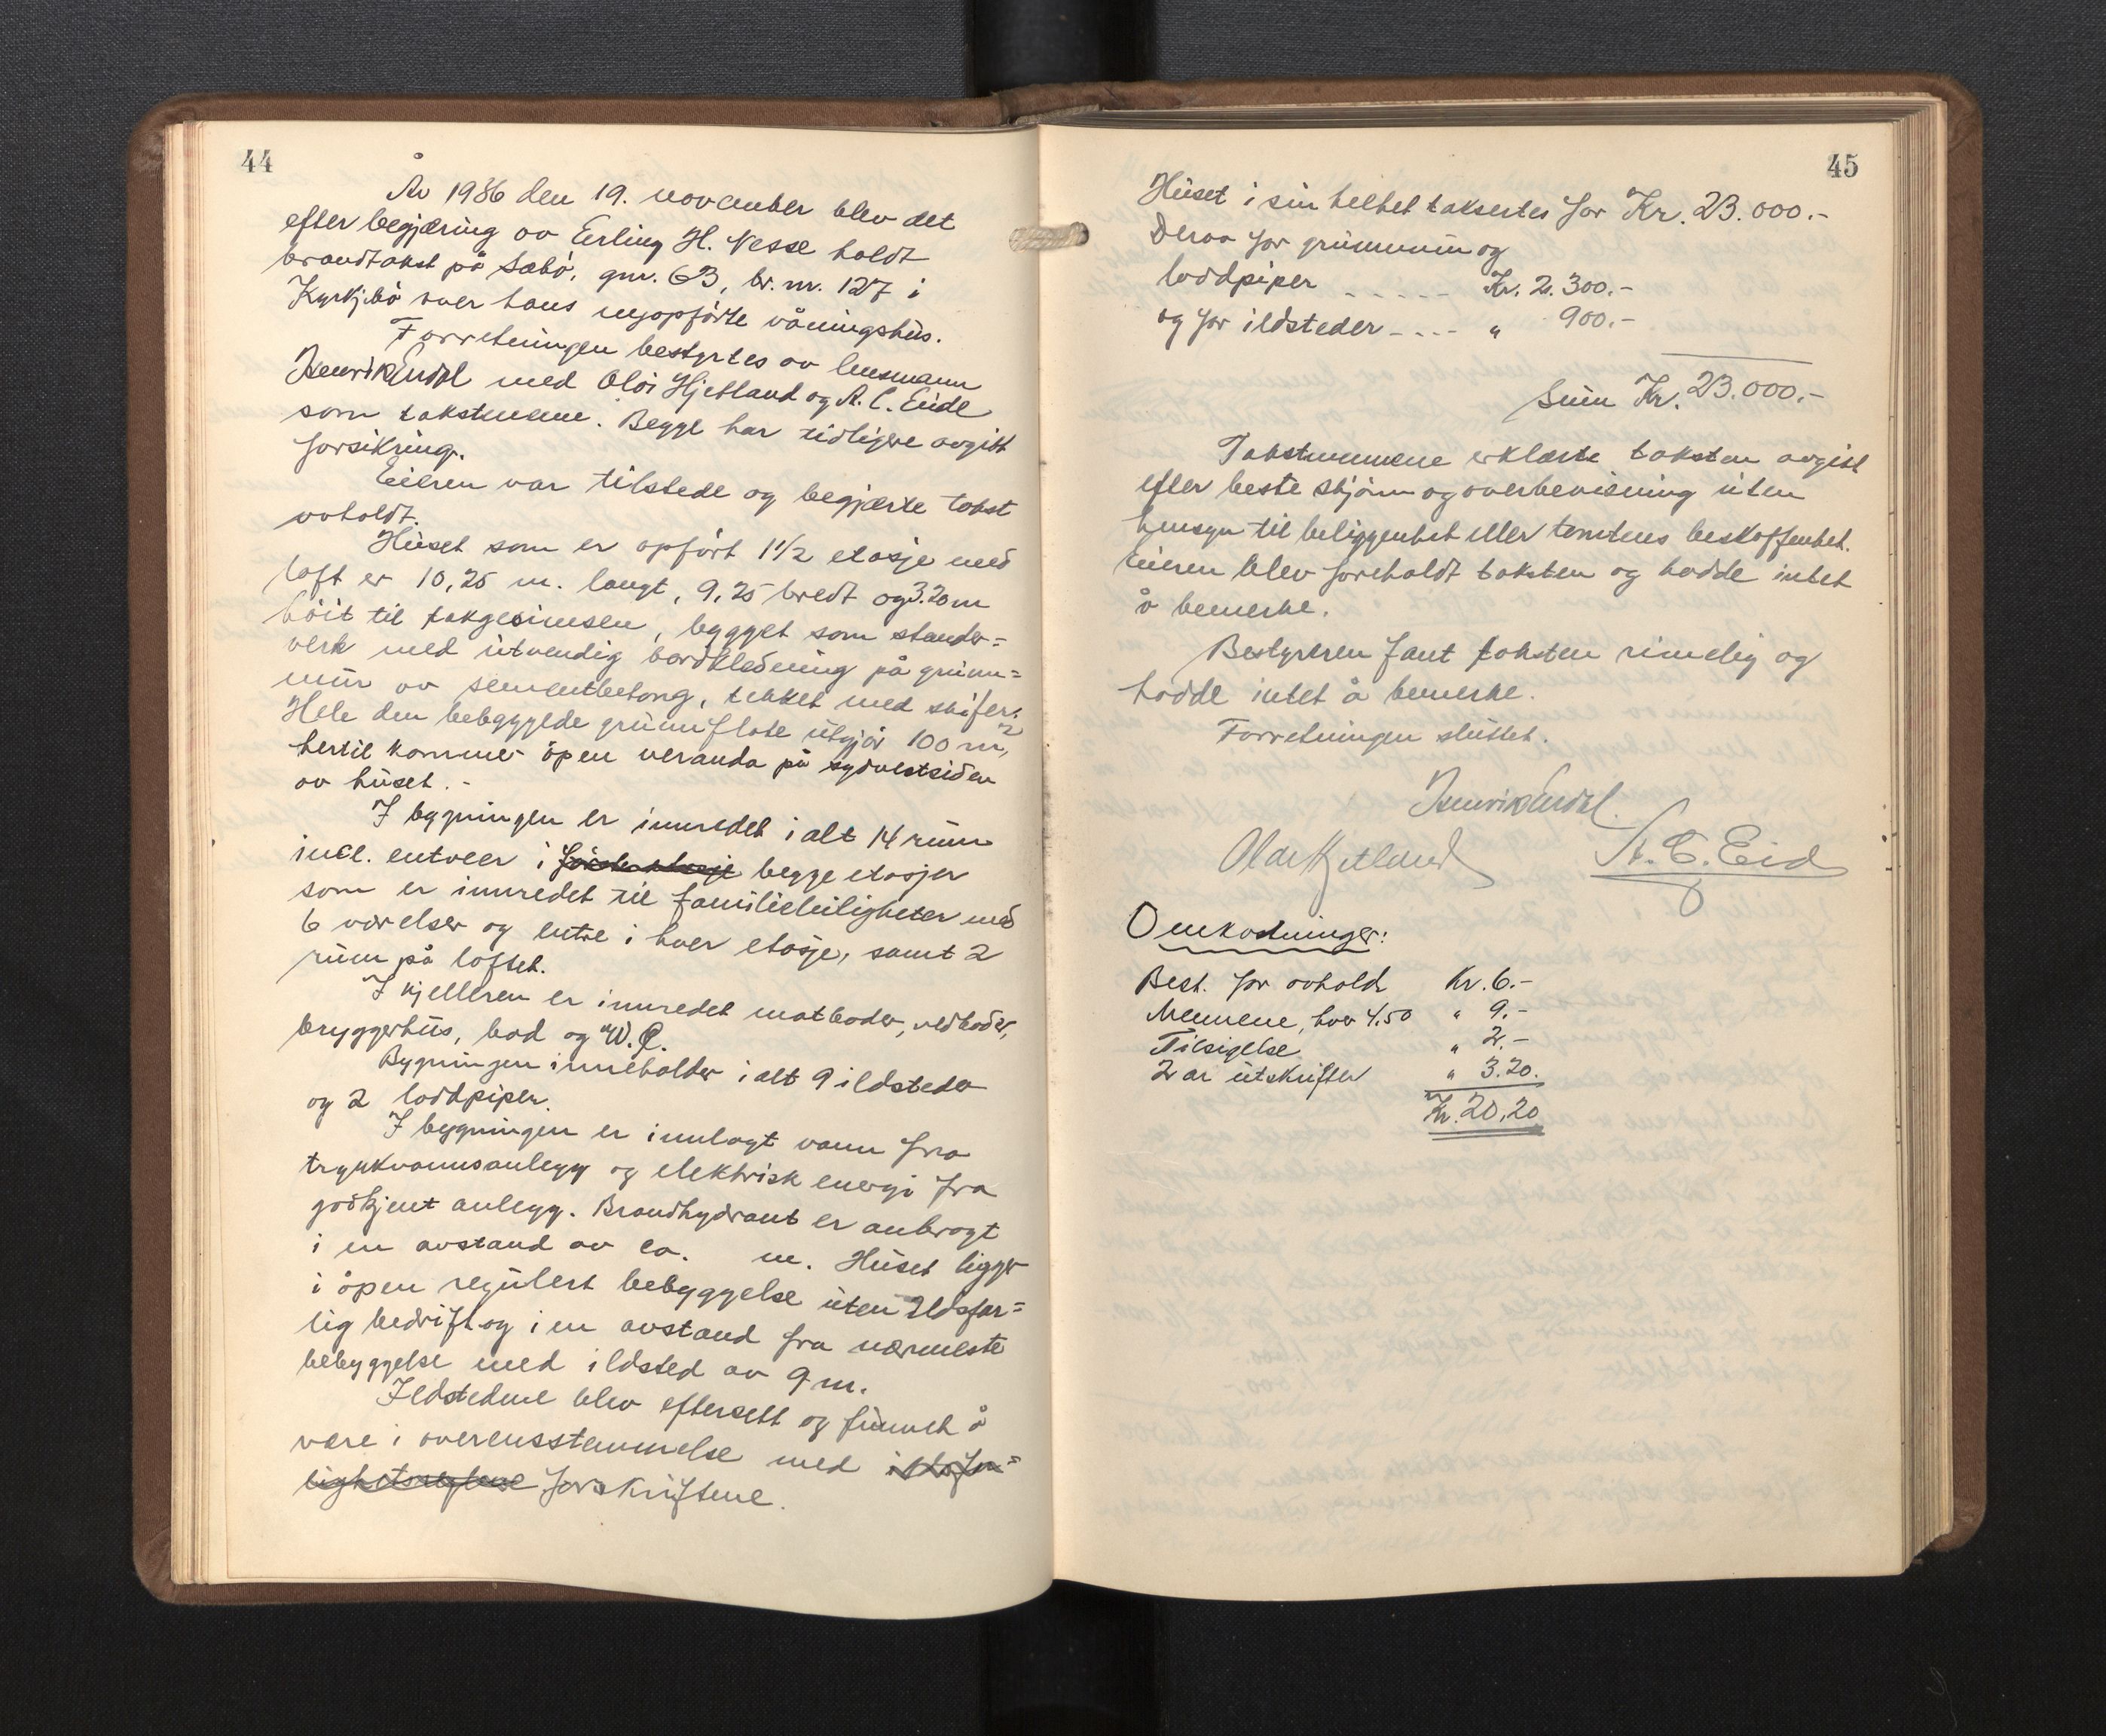 44
År 1936 den 19. november blev det
efter begjæring av Erling H. Nesse holdt
brandtakst på Sæbö, gnr. 63, br. nr. 127 i
Kyrkjebö over hans nyopförte våningshus.
Forretningen bestyrtes av lensmann
Henrik Endal med Olai Hjetland og A. C. Eide
som takstmenn. Begge har tidligere avgitt
forsikring.
Eieren var tilstede og begjærte takst
avholdt.
Huset som er opfört 1 1/2 etasje med
loft er 10,25 m. langt, 9,25 bredt og 3.20 m
höit til takgesimsen, bygget som stender=
verk med utvendig bordkledning på grunn=
mur av sementbetong, tekket med skifer.
Hele den bebyggede grunnflate utgjör 100 m²,
hertil kommer åpen veranda på sydvestsiden
av huset.-
I bygningen er innredet i alt 14 rum
incl. entreer i förste etasje begge etasjer
som er innredet til familieleiligheter med
6 værelser og entre i hver etasje, samt 2
rum på loftet.
I kjelleren er innredet matboder, vedboder,
bryggerhus, bad og W.C.
Bygningen inneholder i alt 9 ildsteder
og 2 loddpiper.
I bygningen er innlagt vann fra
trykkvannsanlegg og elektrisk energi fra
godkjent anlegg. Brandhydrant er anbragt
i en avstand av ca. m. Huset ligger
i åpen regulert bebyggelse uten ildsfar=
lig bedrift og i en avstand fra nærmeste
bebyggelse med ildsted av 9 m.
Ildstedene blev eftersett og funnet å
være i overensstemmelse med ildsfar=
lighetsreglene forskriftene.
45
Huset i sin helhet taksertes for Kr. 23.000.-
Derav for grunnmur og
loddpiper - - - - - Kr. 2.300.-
og for ildsteder - . - - " 900.-
Sum Kr. 23.000.-
Takstmennene erklærte taksten avgitt
efter beste skjönn og overbevisning uten
hensyn til beliggenhet eller tomtens beskaffenhet.
Eieren blev foreholdt taksten og hadde intet
å bemerke.
Bestyreren fant taksten rimelig og
hadde intet å bemerke.
Forretningen sluttet.
Henrik Endal.
Olai Hjetland A. C. Eide
Omkostninger:
Best. for avhold Kr. 6.-
Mennene, hver 4.50 " 9.-
Tilsigelse " 2.-
2 av utskrifter " 3.20.
Kr. 20,20